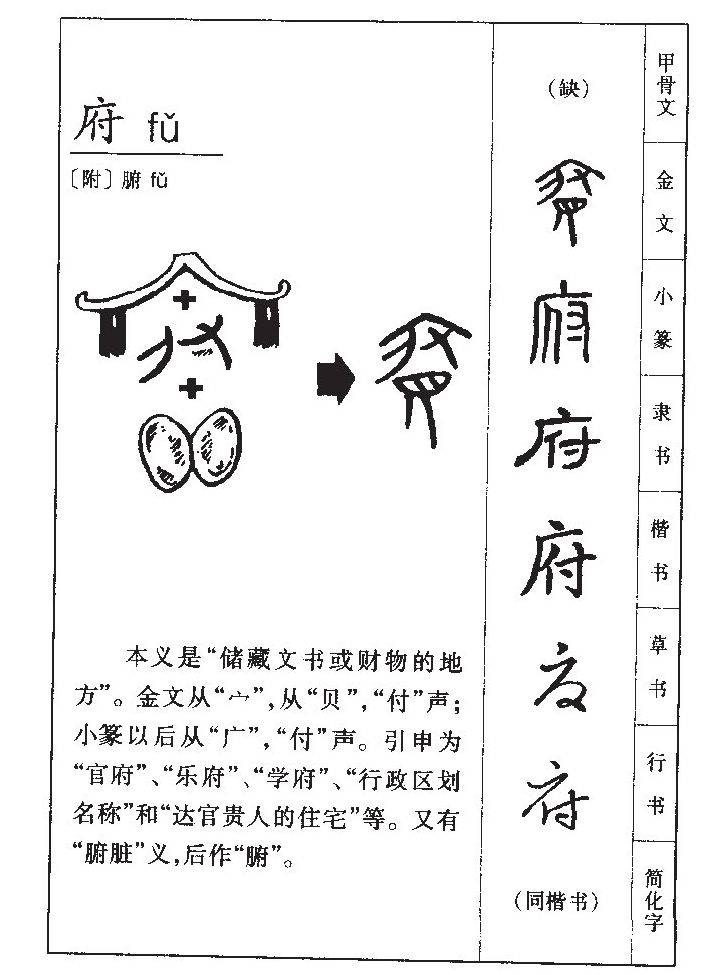 府 fǔ
〔附〕腑 fǔ
本义是“储藏文书或财物的地
方”。金文从“宀”,从“贝”,“付”声;
小篆以后从“广”,“付”声。引申为
“官府”、“乐府”、“学府”、“行政区划
名称”和“达官贵人的住宅”等。又有
“腑脏”义,后作“腑”。
(缺)
府
府
府
府
府
府
(同楷书)
甲骨文
金文
小篆
隶书
楷书
草书
行书
简化字